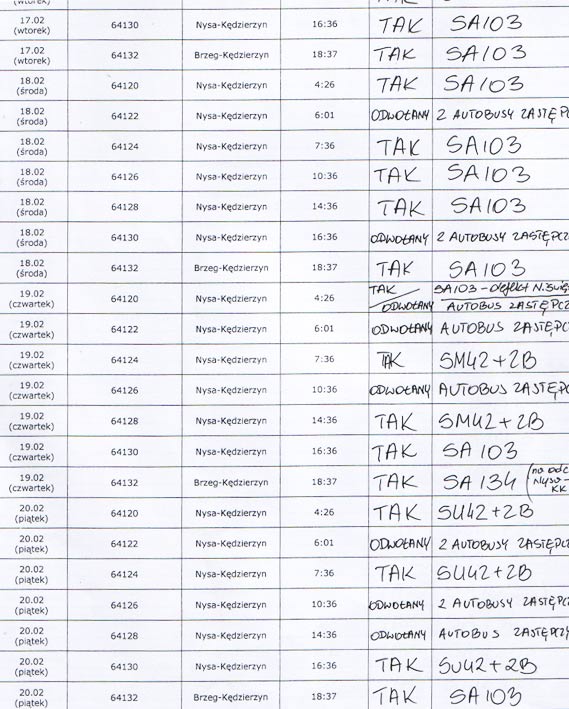 (wtorek)
17.02 (wtorek) 64130 Nysa-Kędzierzyn 16:36 TAK SA103
17.02 (wtorek) 64132 Brzeg-Kędzierzyn 18:37 TAK SA103
18.02 (środa) 64120 Nysa-Kędzierzyn 4:26 TAK SA103
18.02 (środa) 64122 Nysa-Kędzierzyn 6:01 ODWOŁANY 2 AUTOBUSY ZASTĘPC
18.02 (środa) 64124 Nysa-Kędzierzyn 7:36 TAK SA103
18.02 (środa) 64126 Nysa-Kędzierzyn 10:36 TAK SA103
18.02 (środa) 64128 Nysa-Kędzierzyn 14:36 TAK SA103
18.02 (środa) 64130 Nysa-Kędzierzyn 16:36 ODWOŁANY 2 AUTOBUSY ZASTĘPCZ
18.02 (środa) 64132 Brzeg-Kędzierzyn 18:37 TAK SA103
19.02 (czwartek) 64120 Nysa-Kędzierzyn 4:26 TAK / ODWOŁANY SA103 - defekt N. AUTOBUS ZASTĘPCZ
19.02 (czwartek) 64122 Nysa-Kędzierzyn 6:01 ODWOŁANY AUTOBUS ZASTĘPC
19.02 (czwartek) 64124 Nysa-Kędzierzyn 7:36 TAK SM42+2B
19.02 (czwartek) 64126 Nysa-Kędzierzyn 10:36 ODWOŁANY AUTOBUS ZASTĘPC
19.02 (czwartek) 64128 Nysa-Kędzierzyn 14:36 TAK SM42+2B
19.02 (czwartek) 64130 Nysa-Kędzierzyn 16:36 TAK SA 103
19.02 (czwartek) 64132 Brzeg-Kędzierzyn 18:37 TAK SA 134 (na odc Nysa- KK
20.02 (piątek) 64120 Nysa-Kędzierzyn 4:26 TAK SU42+2B
20.02 (piątek) 64122 Nysa-Kędzierzyn 6:01 ODWOŁANY 2 AUTOBUSY ZASTĘPCZ
20.02 (piątek) 64124 Nysa-Kędzierzyn 7:36 TAK SU42+2B
20.02 (piątek) 64126 Nysa-Kędzierzyn 10:36 ODWOŁANY 2 AUTOBUSY ZASTĘPC
20.02 (piątek) 64128 Nysa-Kędzierzyn 14:36 ODWOŁANY AUTOBUS ZASTĘPCZY
20.02 (piątek) 64130 Nysa-Kędzierzyn 16:36 TAK SU42+2B
20.02 (piątek) 64132 Brzeg-Kędzierzyn 18:37 TAK SA103